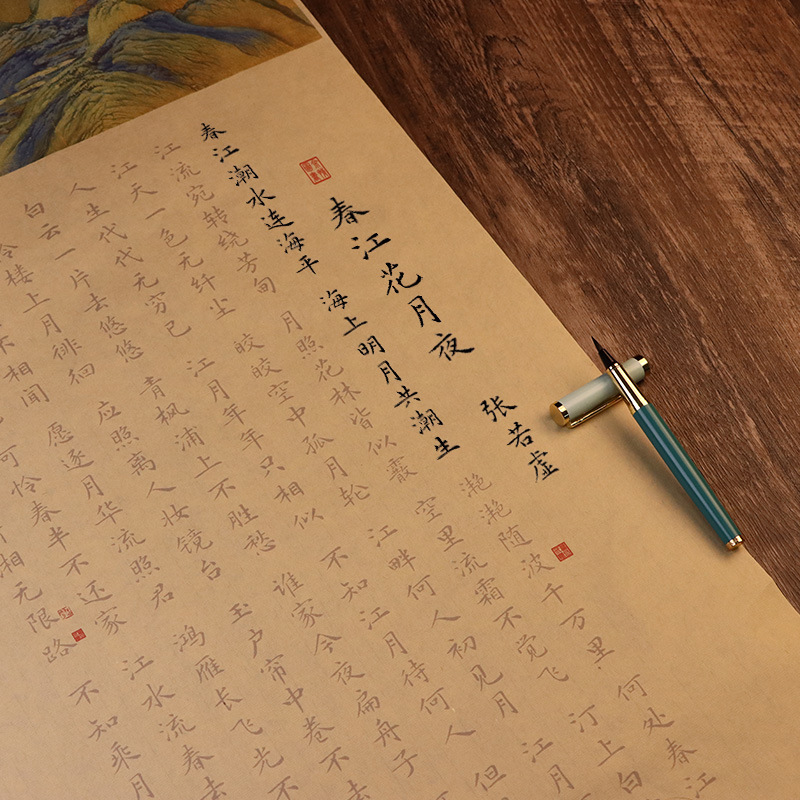 春江花月夜 张若虚
春江潮水连海平 海上明月共潮生 滟滟随波千万里 何处春江
江流宛转绕芳甸 月照花林皆似霰 空里流霜不觉飞 汀上白
江天一色无纤尘 皎皎空中孤月轮 江畔何人初见月 江月
人生代代无穷已 江月年年只相似 不知江月待何人 但
白云一片去悠悠 青枫浦上不胜愁 谁家今夜扁舟子
怜楼上月徘徊 应照离人妆镜台 玉户帘中卷不去
不相闻 愿逐月华流照君 鸿雁长飞光不
可怜春半不还家 江水流春去
湘无限路 不知乘月